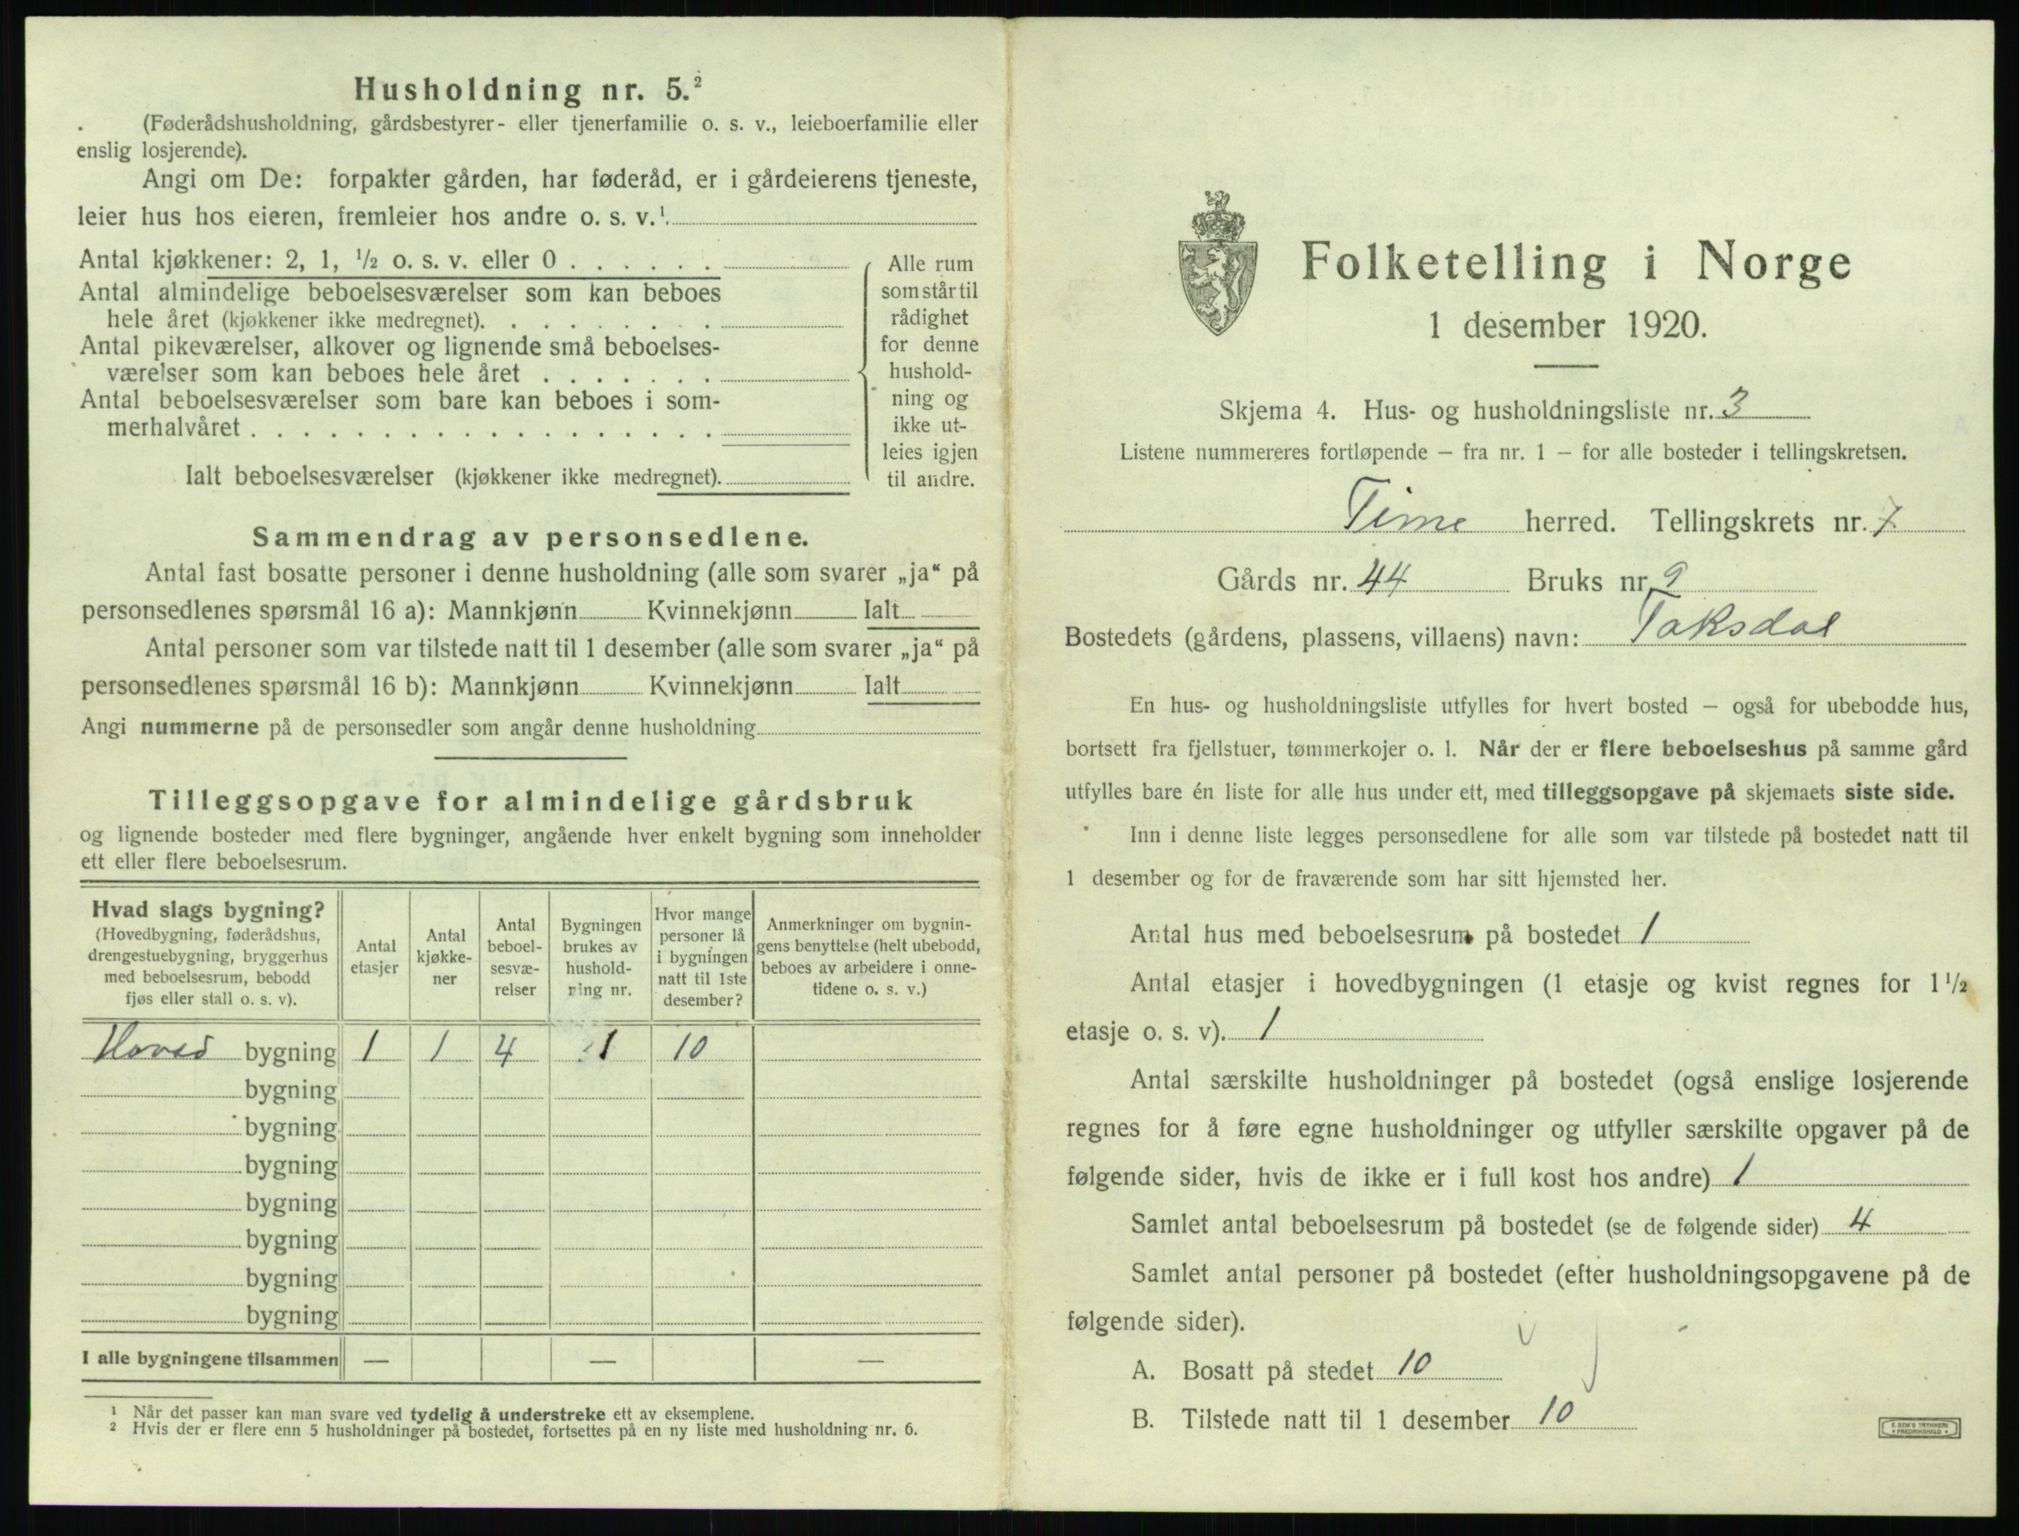 Husholdning nr. 5.²
(Føderådshusholdning, gårdsbestyrer- eller tjenerfamilie o. s. v., leieboerfamilie eller
enslig losjerende).
Angi om De: forpakter gården, har føderåd, er i gårdeierens tjeneste,
leier hus hos eieren, fremleier hos andre o. s. v.¹
Antal kjøkkener: 2, 1, ½ o. s. v. eller 0
Antal almindelige beboelsesværelser som kan beboes
hele året (kjøkkener ikke medregnet).
Antal pikeværelser, alkover og lignende små beboelses-
værelser som kan beboes hele året
Antal beboelsesværelser som bare kan beboes i som-
merhalvåret
Ialt beboelsesværelser (kjøkkener ikke medregnet).
Alle rum
som står til
rådighet
for denne
hushold-
ning og
ikke ut-
leies igjen
til andre.
Sammendrag av personsedlene.
Antal fast bosatte personer i denne husholdning (alle som svarer „ja“ på
personsedlenes spørsmål 16 a): Mannkjønn Kvinnekjønn Ialt
Antal personer som var tilstede natt til 1 desember (alle som svarer „ja“ på
personsedlenes spørsmål 16 b): Mannkjønn Kvinnekjønn Ialt
Angi nummerne på de personsedler som angår denne husholdning
Tilleggsopgave for almindelige gårdsbruk
og lignende bosteder med flere bygninger, angående hver enkelt bygning som inneholder
ett eller flere beboelsesrum.
Hvad slags bygning?
(Hovedbygning, føderådshus,
drengestuebygning, bryggerhus
med beboelsesrum, bebodd
fjøs eller stall o. s. v).
Antal
etasjer
Antal
kjøkke-
ner
Antal
beboel-
sesvæ-
relser
Bygningen
brukes av
hushold-
ring nr.
Hvor mange
personer lå
i bygningen
natt til 1ste
desember?
Anmerkninger om bygnin-
gens benyttelse (helt ubebodd,
beboes av arbeidere i onne-
tidene o. s. v.)
Hoved bygning 1 1 4 1 10
bygning
bygning
bygning
bygning
bygning
bygning
bygning
I alle bygningene tilsammen — — —
¹ Når det passer kan man svare ved tydelig å understreke ett av eksemplene.
² Hvis der er flere enn 5 husholdninger på bostedet, fortsettes på en ny liste med husholdning nr. 6.
Folketelling i Norge
1 desember 1920.
Skjema 4. Hus- og husholdningsliste nr. 3
Listene nummereres fortløpende – fra nr. 1 – for alle bosteder i tellingskretsen.
Time herred. Tellingskrets nr. 7
Gårds nr. 44 Bruks nr. 9
Bostedets (gårdens, plassens, villaens) navn: Taksdal
En hus- og husholdningsliste utfylles for hvert bosted – også for ubebodde hus,
bortsett fra fjellstuer, tømmerkojer o. l. Når der er flere beboelseshus på samme gård
utfylles bare én liste for alle hus under ett, med tilleggsopgave på skjemaets siste side.
Inn i denne liste legges personsedlene for alle som var tilstede på bostedet natt til
1 desember og for de fraværende som har sitt hjemsted her.
Antal hus med beboelsesrum på bostedet 1
Antal etasjer i hovedbygningen (1 etasje og kvist regnes for 1½
etasje o. s. v). 1
Antal særskilte husholdninger på bostedet (også enslige losjerende
regnes for å føre egne husholdninger og utfyller særskilte opgaver på de
følgende sider, hvis de ikke er i full kost hos andre) 1
Samlet antal beboelsesrum på bostedet (se de følgende sider) 4
Samlet antal personer på bostedet (efter husholdningsopgavene på de
følgende sider).
A. Bosatt på stedet 10
B. Tilstede natt til 1 desember 10
E. SEM'S TRYKKERI
• FREDRIKSHALD •